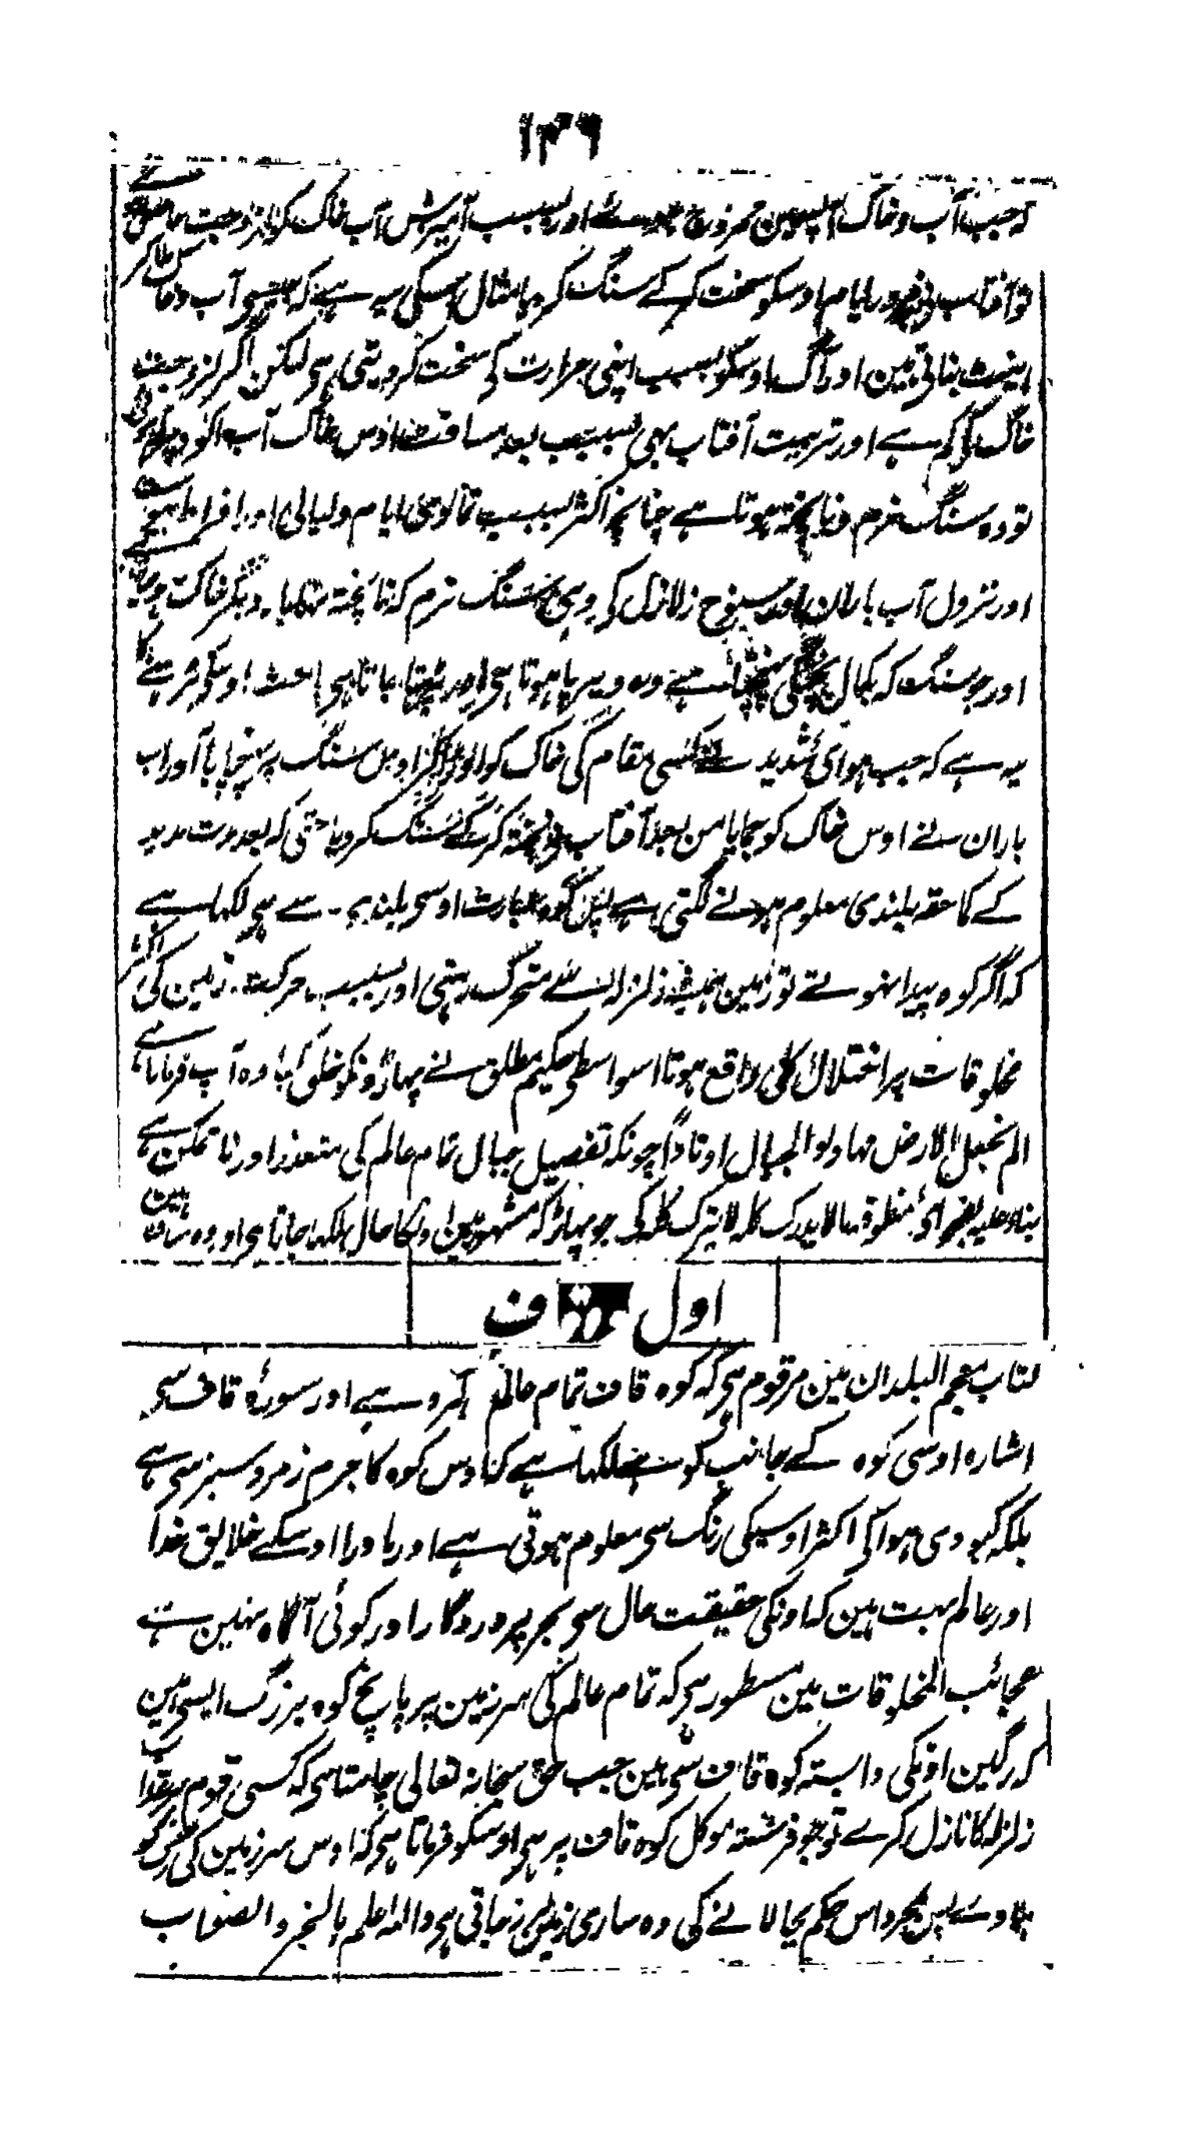 ۱۴۶
کہ جب آب و خاک آپسمین ممزوج ہوئے اور بسبب آمیزش آب خاک کو لزوجت حاصل ہوئی
تو آفتاب نی بمرور ایام اوسکو سخت کر کے سنگ کر دیا مثال اسکی یہ ہے کہ جیسی آب و خاک ملا کر
اینٹ بناتی ہین اور آگ اوسکو بسبب اپنی حرارت کی سخت کر دیتی ہی لیکن اگر لزوجت
خاک کی کم ہے اور تربیت آفتاب بھی بسبب بعد مسافت اوس خاک آب آلود پر
تو وہ سنگ نرم و ناپختہ ہوتا ہے چنانچہ اکثر بسبب تمادی ایام و لیالی اور افراط
اور نزول آب باران اور سنوح زلازل کی وہی سنگ نرم کہ ناپختہ تھا۔ دیگر خاکت ہو
اور جو سنگ کہ بکمال پختگی پہنچتا ہے وہ دیرپا ہوتا ہی اور بڑھتا جاتا ہی باعث اوسکی بڑہنے کا
یہ ہے کہ جب ہوای شدید نے کسی مقام کی خاک کو اوڑا کر اوس سنگ پر پہنچایا اور آب
باران نے اوس خاک کو جمایا من بعد آفتاب نی پختہ کر کے سنگ کر دیا حتی کہ بعد مدت مدید
کے کما حقہ بلندی معلوم ہونے لگتی ہے پس کوہ عبارت اوسی بلندی سے ہی لکھا ہے
کہ اگر کوہ پیدا نہوتے تو زمین ہمیشہ زلزلہ سے متحرک رہتی اور بسبب حرکت زمین کی اکثر
مخلوقات پر اختلال کلی واقع ہوتا اسواسطی حکیم مطلق نے پہاڑونکو خلق کیا وہ آپ فرماتا ہے
الم نجعل الارض مہادا والجبال اوتاداً چونکہ تفصیل جبال تمام عالم کی متعذر اور ناممکن ہے
بناء علیہ بفحوای منطوقہ مالا یدرک کلہ لا یترک کلہ کی جو پہاڑ کہ مشہور ہین اونکا حال لکھا جاتا ہی اور وہ سات ہین
اول قاف
کتاب معجم البلدان مین مرقوم ہی کہ کوہ قاف تمام عالم کے گرد ہے اور سورۂ قاف سی
اشارہ اوسی کوہ کے جانب کو ہے لکھا ہے کہ اوس کوہ کا جرم زمرد سبز سی ہے
بلکہ کبودی ہوا کی اکثر اوسیکی رنگ سی معلوم ہوتی ہے اور ماورا اوسکے خلایق خدا
اور عالم بہت ہین کہ اونکی حقیقت حال سی بجز پروردگار اور کوئی آگاہ نہین ہے
عجائب المخلوقات مین مسطور ہی کہ تمام عالم کی سرزمین پر پانچ کوہ بزرگ ایسی ہین
کہ رگین اونکی وابستہ کوہ قاف سی ہین جب حق سبحانہ تعالی چاہتا ہی کہ کسی قوم پر عذاب
زلزلہ کا نازل کرے تو جو فرشتہ موکل کوہ قاف پر ہی اوسکو فرماتا ہی کہ اوس سرزمین کی رگ کو
ہلاوے پس بمجرد اس حکم بجا لانے کی وہ ساری زمین لرز جاتی ہی واللہ اعلم بالخیر والصواب